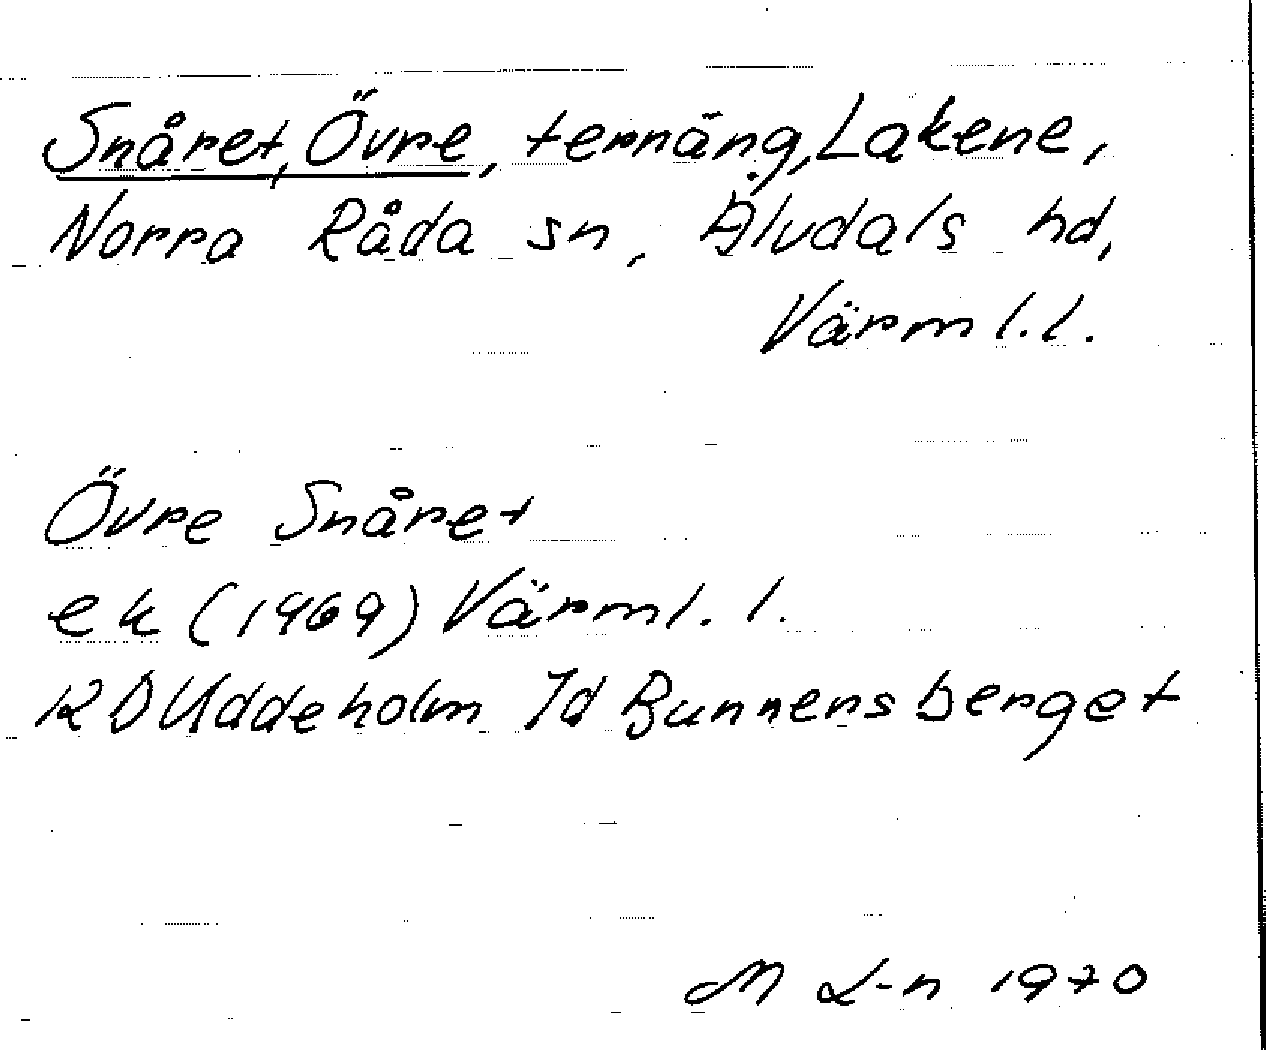 Snåret, Övre, ternäng, Lakene,
Norra Råda sn, Älvdals hd,
Värml.l.
Övre Snåret
ek (1969) Värml. l.
RD Uddeholm Id Bunnensberget
M L-n 1970